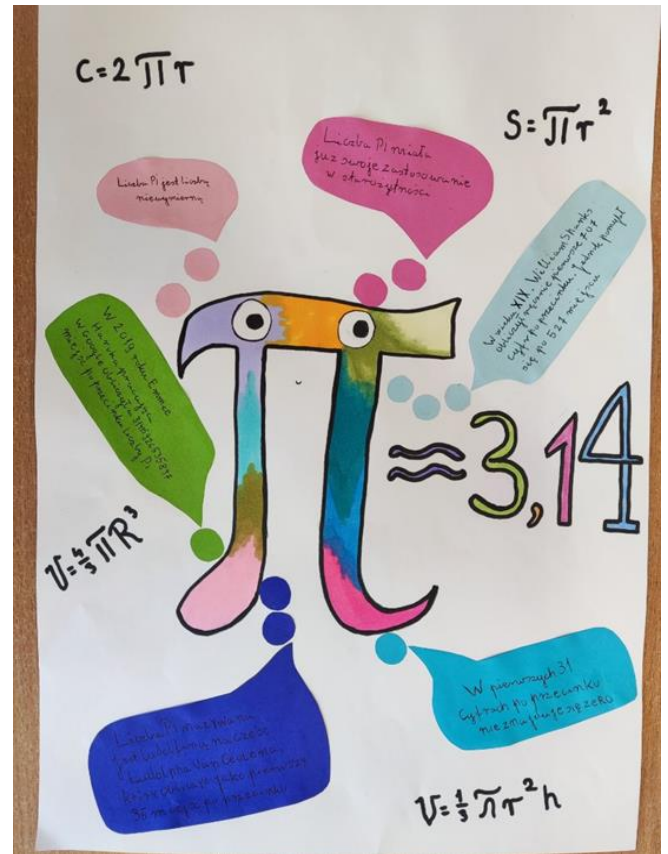 C=2πr
S=πr²
Liczba Pi jest liczbą
niewymierną
Liczba Pi miała
już swoje zastosowanie
w starożytności
W wieku XIX. William Shanks
obliczył ręcznie pierwsze 707
cyfr po przecinku. Jednak pomylił
się po 527 miejscu
W 2019 roku Emma
Haruka pracująca
w Google obliczyła
miejsc po przecinku liczby Pi
π≈3,14
V=4/3πR³
W pierwszych 31
cyfrach po przecinku
nie znajduje się zero
Liczba Pi nazywana
jest ludolfiną na cześć
Ludolpha Van Ceulena,
który jako pierwszy
35 miejsc po przecinku
V=1/3πr²h